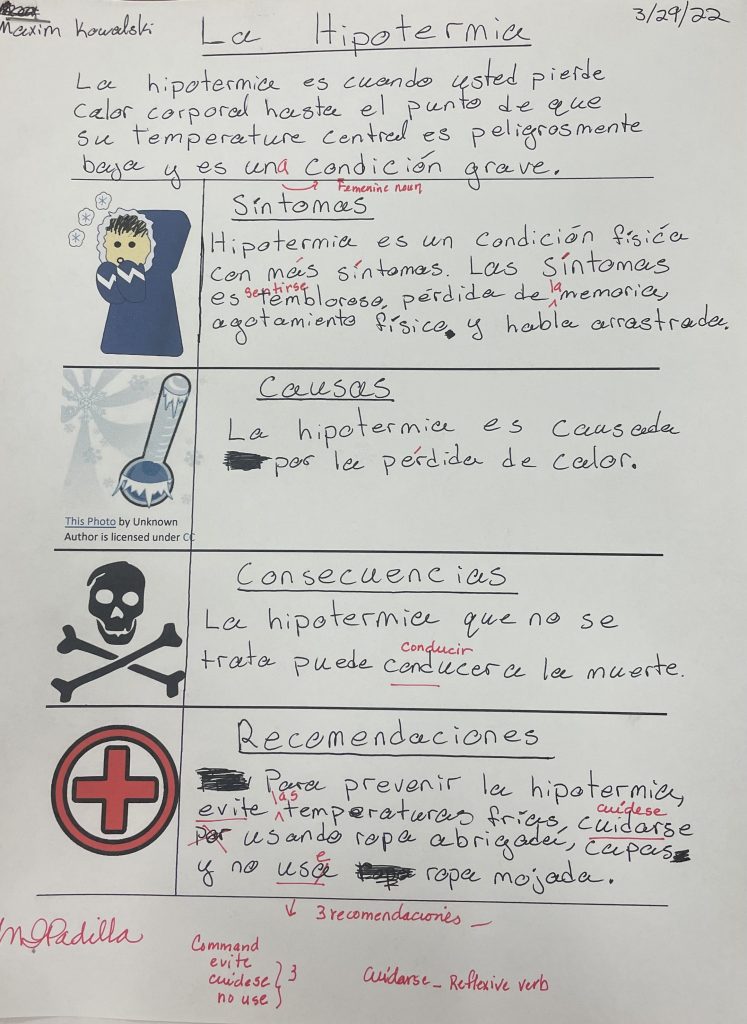 Maxim Kowalski
3/29/22
La Hipotermia
La hipotermia es cuando usted pierde
calor corporal hasta el punto de que
su temperature central es peligrosmente
baja y es una condición grave.
Femenine noun
Síntomas
Hipotermia es un condición física
con más síntomas. Las síntomas
es sentirse tembloroso, pérdida de la memoria,
agotamiento físico. y habla arrastrada.
Causas
La hipotermia es causada
por la pérdida de calor.
This Photo by Unknown
Author is licensed under CC
Consecuencias
La hipotermia que no se
conducir
trata puede conducer a la muerte.
Recomendaciones
Para prevenir la hipotermia,
las
evite temperaturas frías, cuidarse
cuídese
por usando ropa abrigada, capas
y no use ropa mojada.
3 recomendaciones
M J Padilla
Command
evite
cuídese } 3
no use
Cuidarse - Reflexive verb